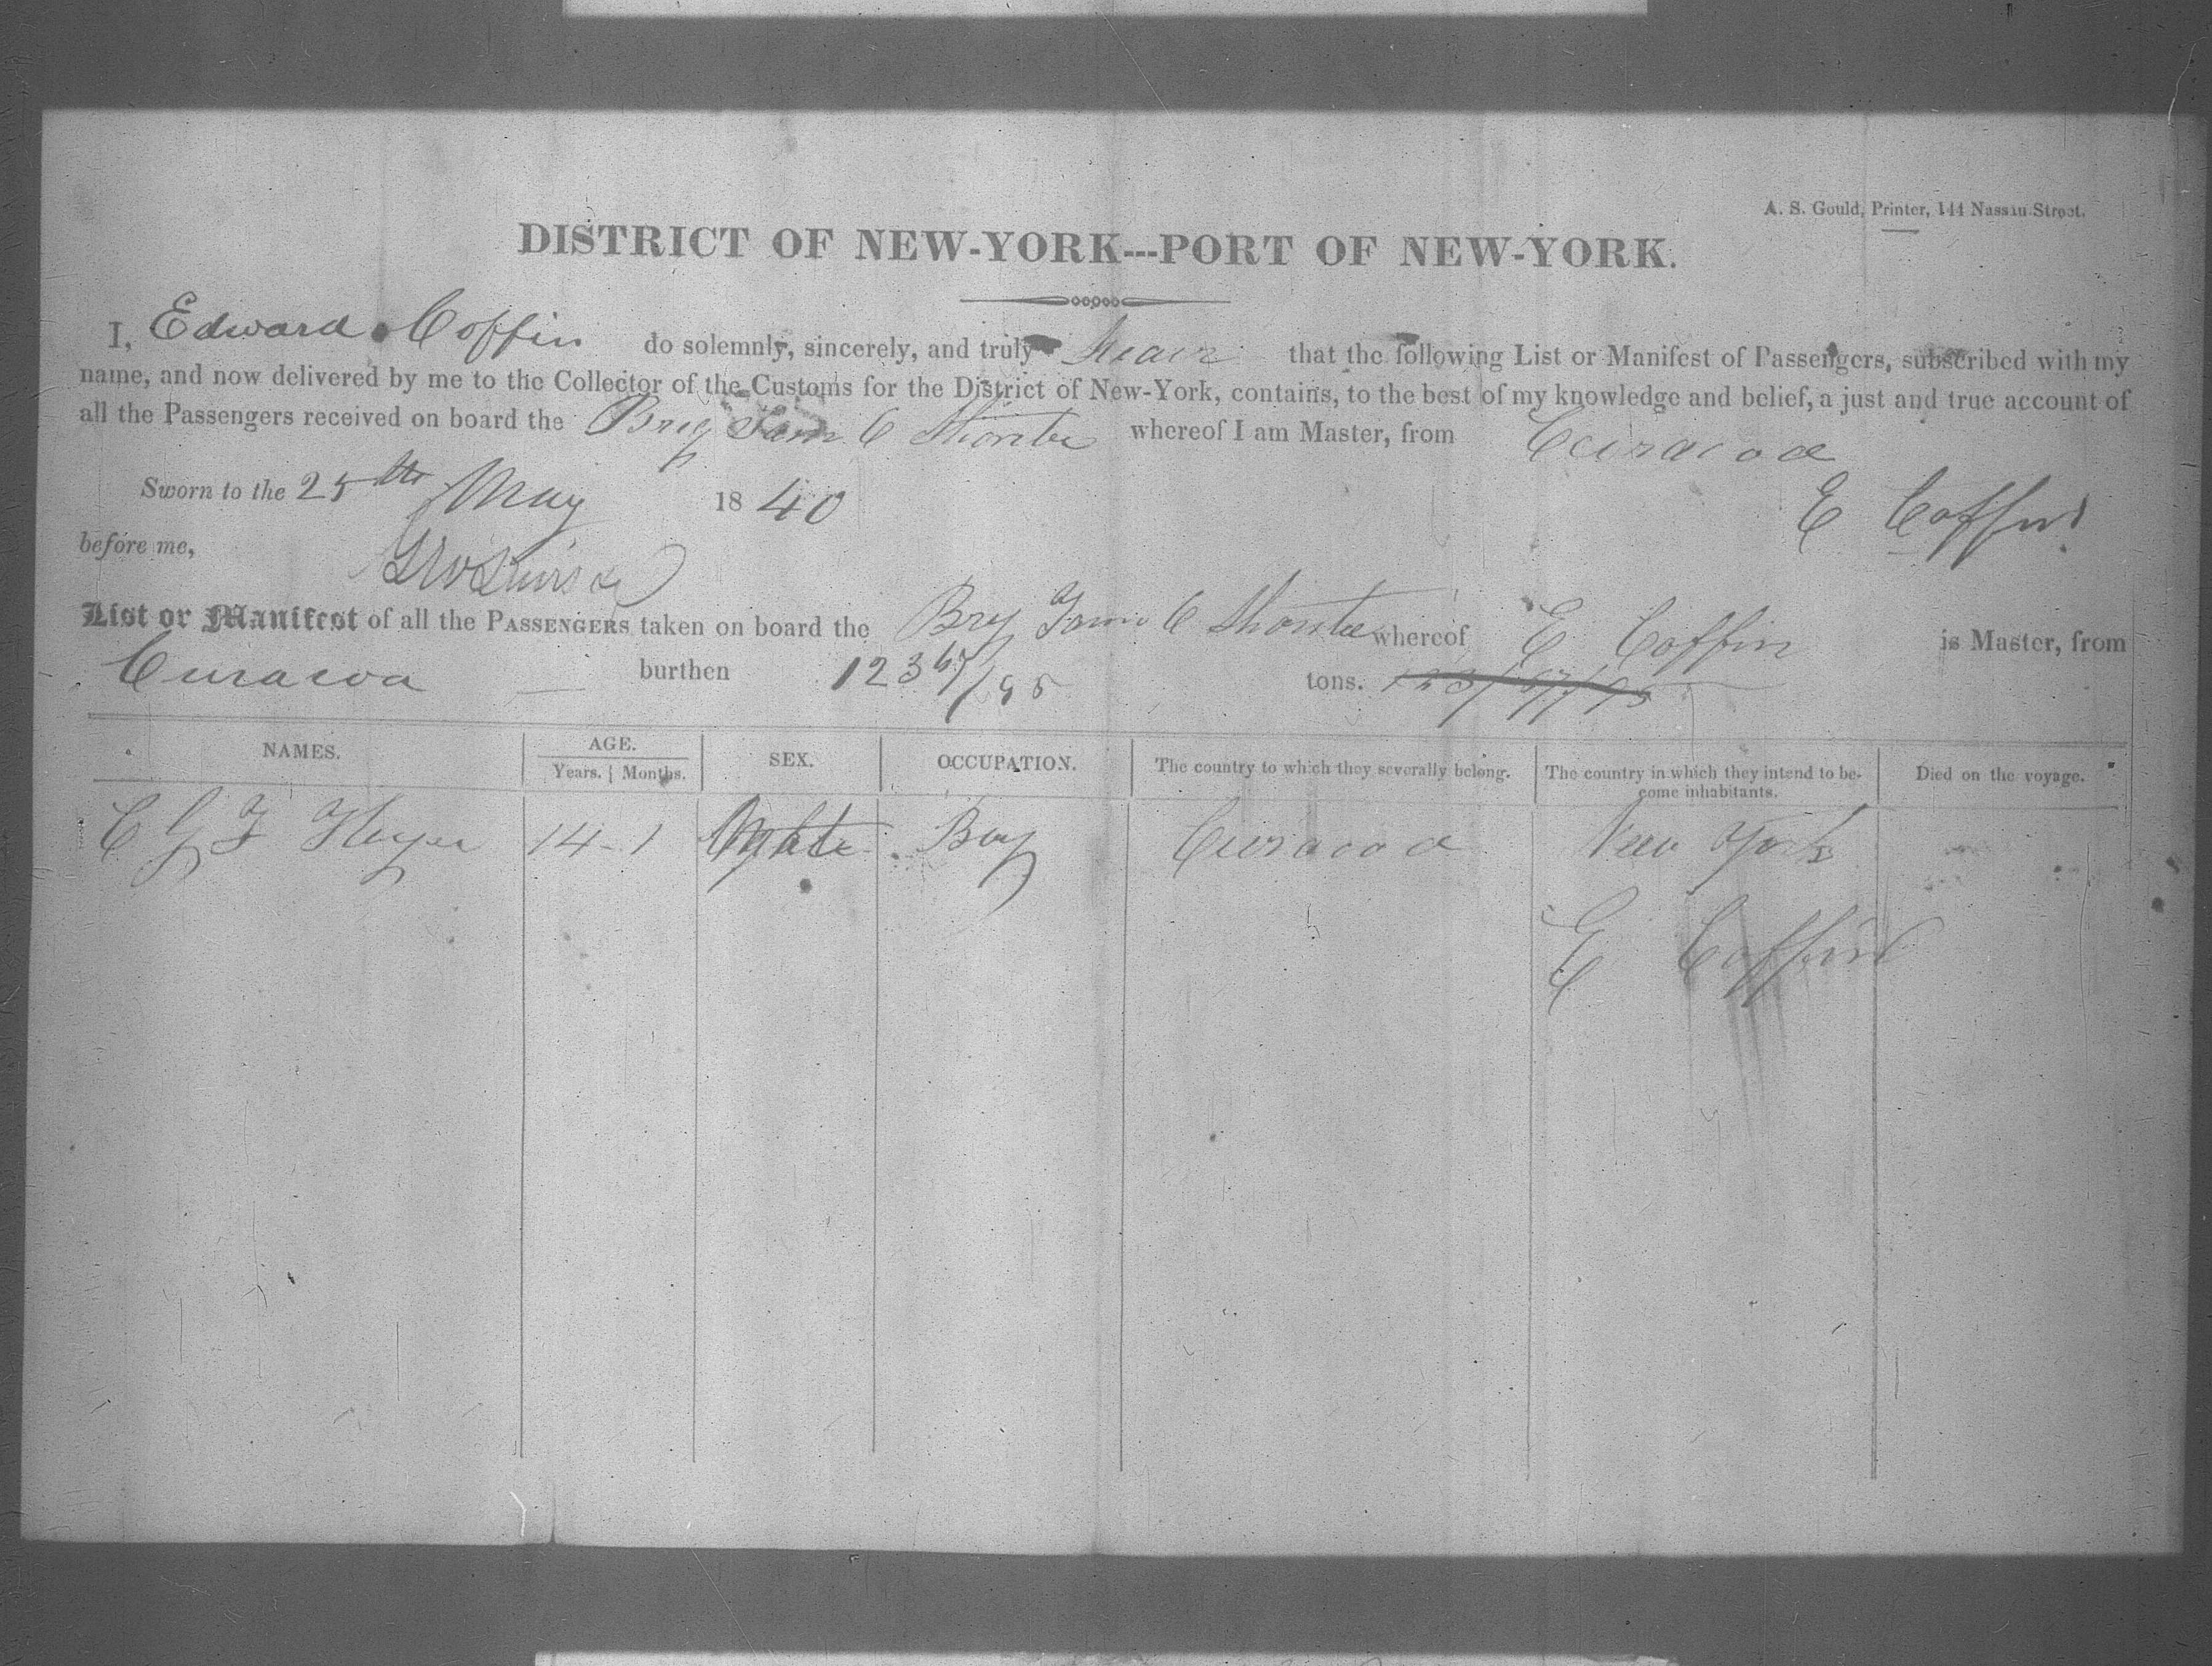 A. S. Gould, Printer, 144 Nassau Street.
DISTRICT OF NEW-YORK---PORT OF NEW-YORK.
I, Edward Coffin do solemnly, sincerely, and truly swear that the following List or Manifest of Passengers, subscribed with my
name, and now delivered by me to the Collector of the Customs for the District of New-York, contains, to the best of my knowledge and belief, a just and true account of
all the Passengers received on board the Brig whereof I am Master, from Curacoa
Sworn to the 25th May 1840
E Coffin
before me,
List or Manifest of all the PASSENGERS taken on board the Brig whereof E Coffin is Master, from
Curacoa burthen 123 67/95 tons.
NAMES. AGE. SEX. OCCUPATION. The country to which they severally belong. The country in which they intend to be- Died on the voyage.
Years. Months. come inhabitants.
C G F Heyer 14-1 Male Boy Curacoa New York
E Coffin